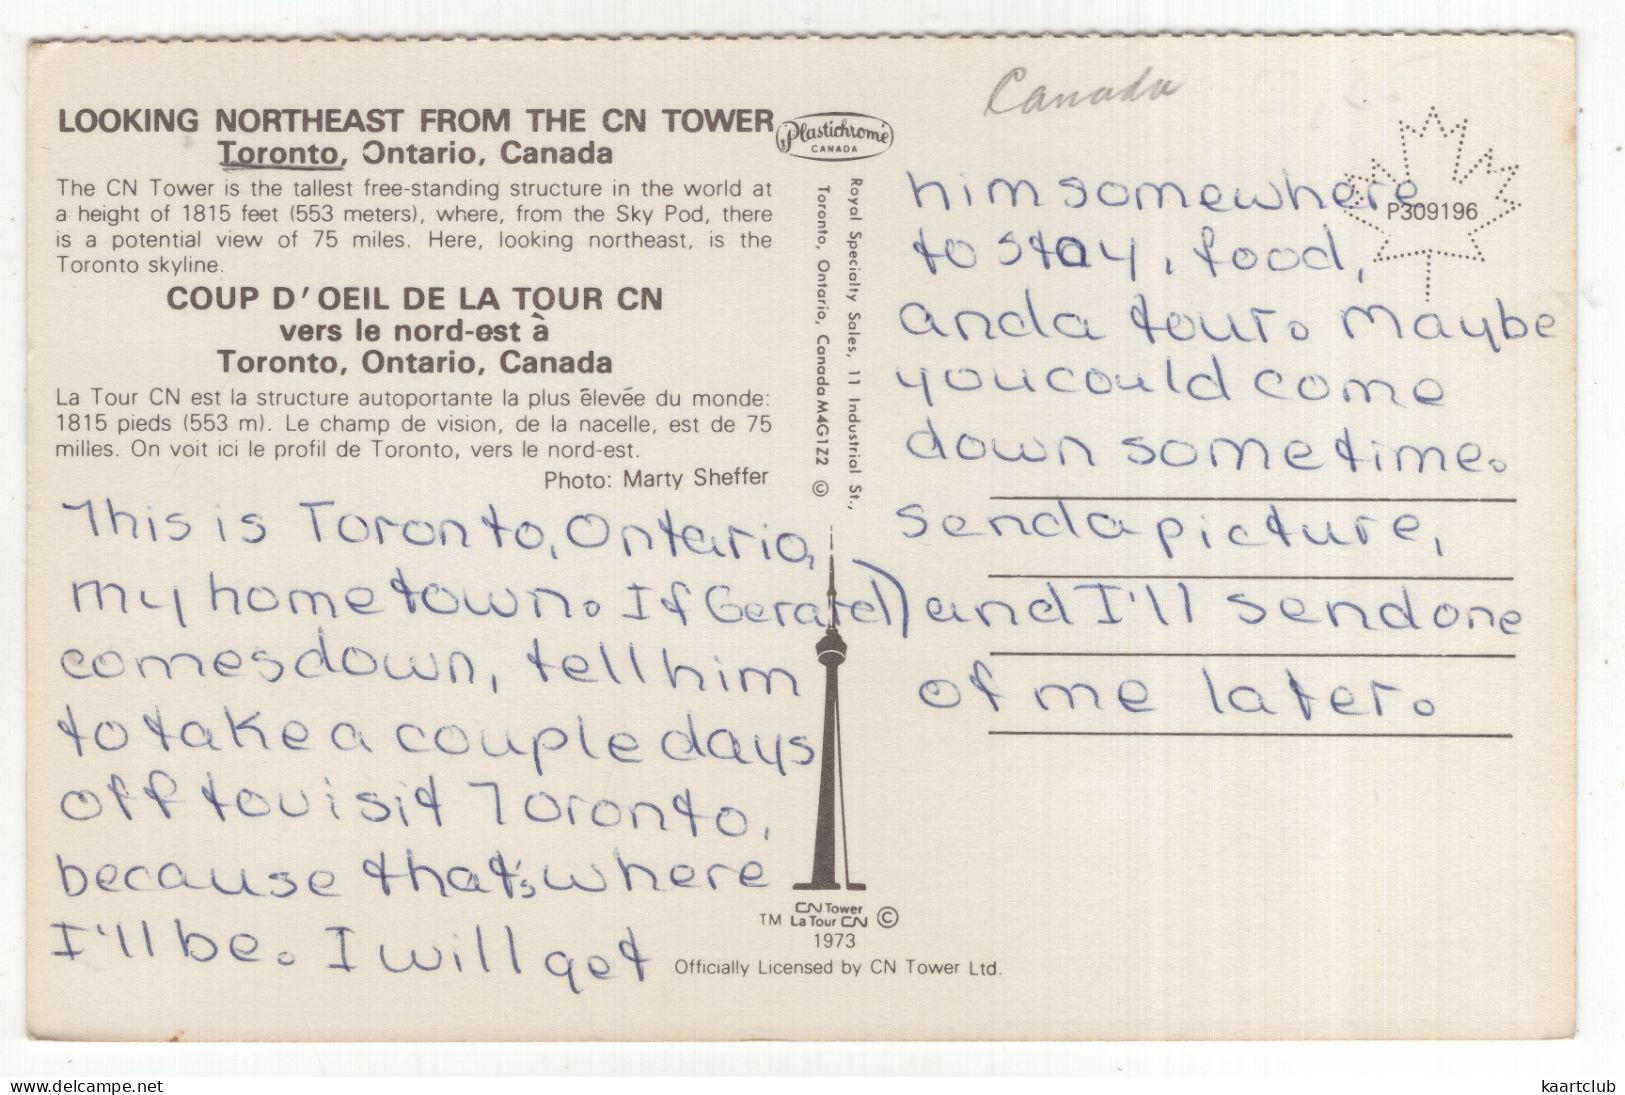 Canada
LOOKING NORTHEAST FROM THE CN TOWER
Toronto, Ontario, Canada
The CN Tower is the tallest free-standing structure in the world at
a height of 1815 feet (553 meters), where, from the Sky Pod, there
is a potential view of 75 miles. Here, looking northeast, is the
Toronto skyline.
COUP D'OEIL DE LA TOUR CN
vers le nord-est à
Toronto, Ontario, Canada
La Tour CN est la structure autoportante la plus élevée du monde:
1815 pieds (553 m). Le champ de vision, de la nacelle, est de 75
milles. On voit ici le profil de Toronto, vers le nord-est.
Photo: Marty Sheffer
Plastichrome
CANADA
Royal Specialty Sales, 11 Industrial St.,
Toronto, Ontario, Canada M4G1Z2 ©
P309196
This is Toronto, Ontario,
my home town. If Gerald)
comes down, tell him
to take a couple days
off to visit Toronto,
because that's, where
I'll be. I will get
him somewhere
to stay, food,
and a tour. Maybe
you could come
down sometime.
send a picture,
and I'll send one
of me later.
CN Tower
TM La Tour CN ©
1973
Officially Licensed by CN Tower Ltd.
www.delcampe.net
kaartclub